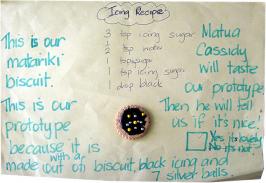 Icing Recipe:
3 tsp icing sugar
2 tsp water
1 tsp sugar
1 tsp icing sugar
1 drop black
This is our
matariki
biscuit.
This is our
prototype
because it is
made out of biscuit, black icing and
with a
7 silver balls.
Matua
Cassidy
will taste
our prototype
Then he will tell
us if its nice.
Yes its lovely
No its not.